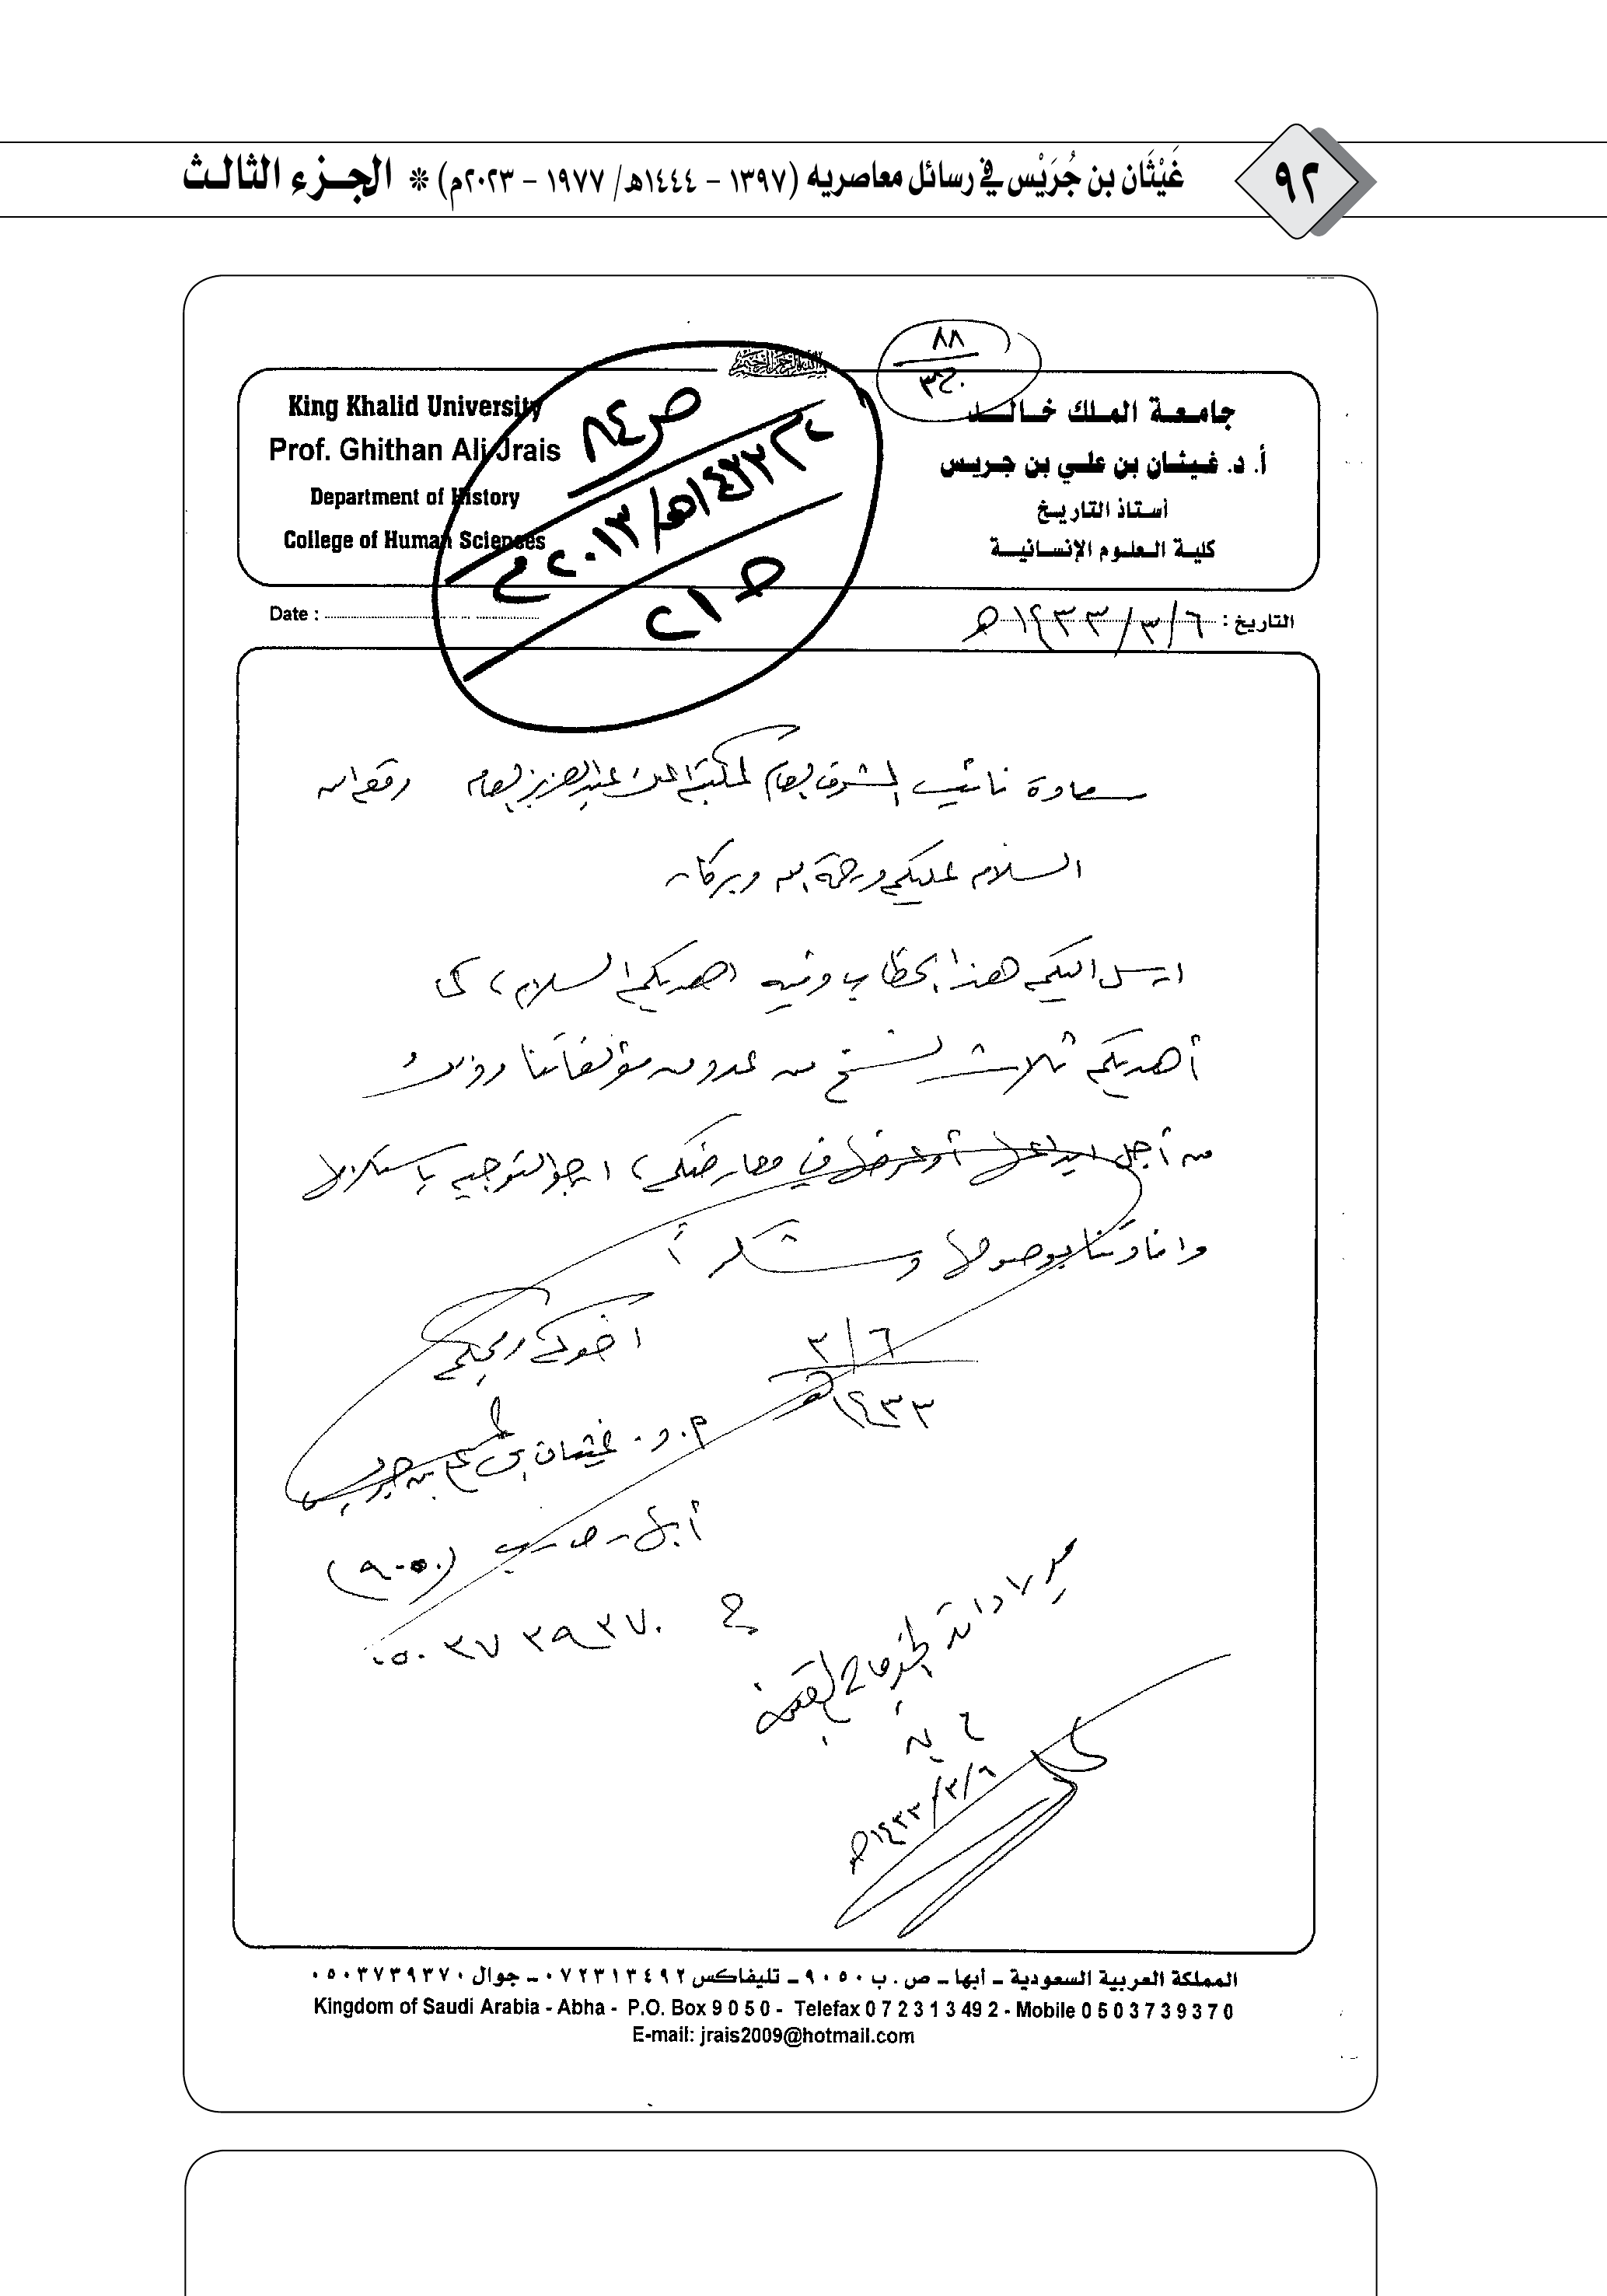 ٩٢
غَيْثَان بن جُرَيْس في رسائل معاصريه (١٣٩٧ - ١٤٤٤هـ/ ١٩٧٧ - ٢٠٢٣م) * الجزء الثالث
٨٨
جامعة الملك خالد
أ. د. غيثان بن علي بن جريس
أستاذ التاريخ
كلية العلوم الإنسانية
King Khalid University
Prof. Ghithan Ali Jrais
Department of History
College of Human Sciences
ص ٨٤
١٤٣٣هـ/٢٠١٢م
التاريخ : ٦/٣/١٤٣٣هـ
Date :
سعادة نائب المشرف العام لمكتبة الملك عبدالعزيز العامة وفقه الله
السلام عليكم ورحمة الله وبركاته
ارسل اليكم هذا الخطاب وفيه اهديكم السلام، كما
أهديكم ثلاث نسخ من عدد من مؤلفاتنا وذلك
من أجل ايداعها أو عرضها في معارضكم، ارجو التوجيه باستلامها
وافادتنا بوصولها وشكراً
أخوكم ومحبكم
٦/٣
١٤٣٣هـ
أ. د. غيثان بن علي بن جريس
أبها - ص. ب (٩٠٥٠)
ج ٠٥٠٣٧٣٩٣٧٠
٩/٣/١٤٣٣هـ
المملكة العربية السعودية - أبها - ص. ب ٩٠٥٠ - تليفاكس ٠٧٢٣١٣٤٩٢ - جوال ٠٥٠٣٧٣٩٣٧٠
Kingdom of Saudi Arabia - Abha - P.O. Box 9 0 5 0 - Telefax 0 7 2 3 1 3 49 2 - Mobile 0 5 0 3 7 3 9 3 7 0
E-mail: jrais2009@hotmail.com